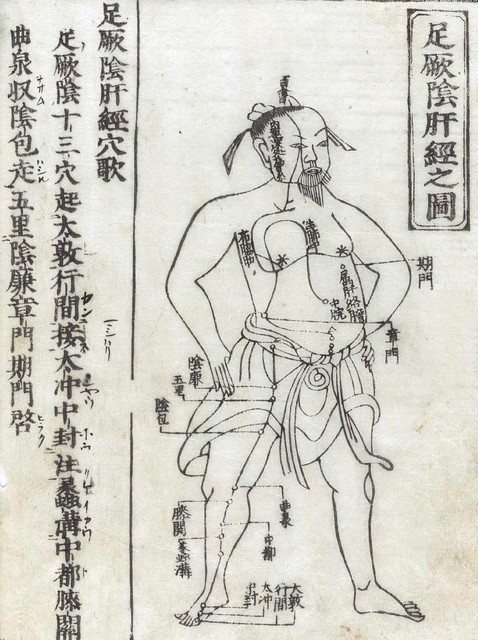 足厥陰肝經之圖
百會
期門
屬肝
絡膽
中院
章門
布脇肋
陰廉
五里
陰包
曲泉
膝關
中都
蠡溝
大敦
行間
太冲
中封
足厥陰肝經穴歌
足厥陰十三穴起太敦行間接太冲中封注蠡溝中都膝關
曲泉収陰包走五里陰廉章門期門啓
ハシル
ヒラク